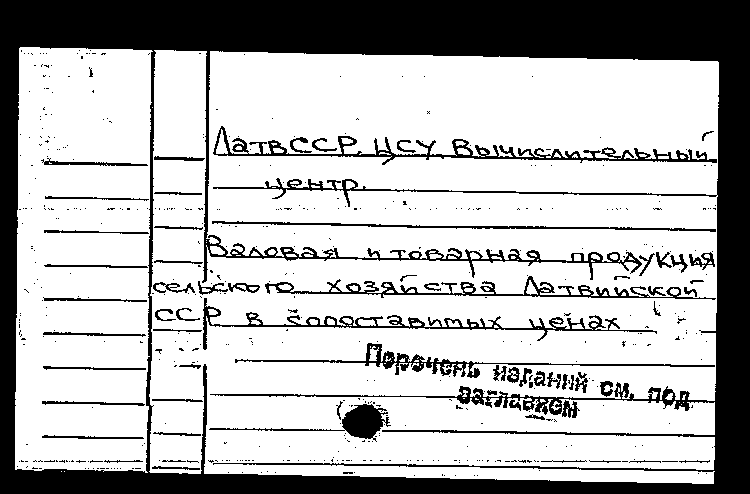 ЛатвССР. ЦСУ. Вычислительный
центр.
Валовая и товарная продукция
сельского хозяйства Латвийской
ССР в сопоставимых ценах
Перечень изданий см. под
заглавием